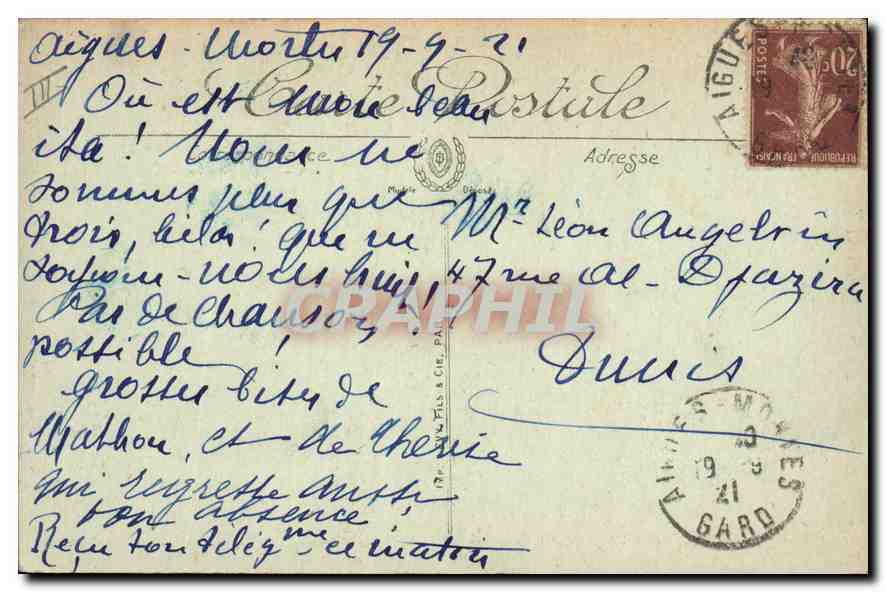 Aigues-Mortes 19-9-21
III
Carte Postale
Où est mon beau
Nous ne
sommes plus que
trois, hélas! que ne
Pas de chanson
possible!
grosses bises de
Mathou, et de Thérèse
qui regrette aussi
ton absence!
Reçu ton télégme ce matin
Correspondance
Adresse
Modèle Déposé
Mr Léon Angelvin
47 rue Al-Djazira
Tunis
FILS & CIE, PAR
20c
POSTES
RÉPUBLIQUE FRANÇAISE
AIGUES
AIGUES-MORTES
19 9
21
GARD
CPAPHIL